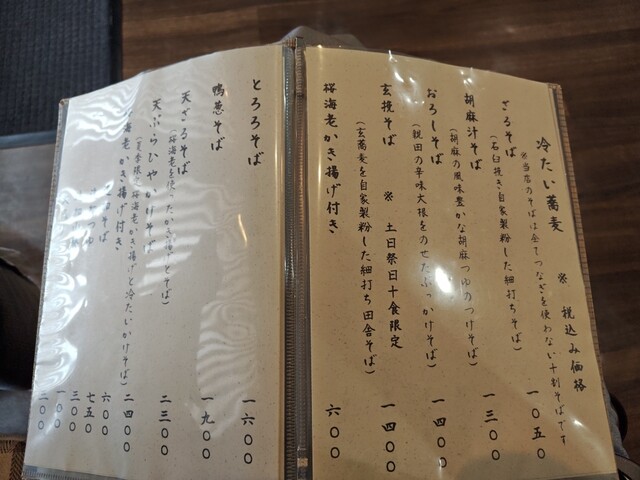 冷たい蕎麦 ※ 税込み価格
※当店のそばは全てつなぎを使わない十割そばです
ざるそば 一〇五〇
(石臼挽き自家製粉した細打ちそば)
胡麻汁そば 一三〇〇
(胡麻の風味豊かな胡麻つゆのつけそば)
おろしそば 一四〇〇
(親田の辛味大根をのせたぶっかけそば)
玄挽そば ※ 土日祭日十食限定 一四〇〇
(玄蕎麦を自家製粉した細打ち田舎そば)
桜海老かき揚げ付き 六〇〇
とろろそば 一六〇〇
鴨葱そば 一九〇〇
天ざるそば 二三〇〇
(桜海老を使ったかき揚げとそば)
天ぷらひやかけそば 二四〇〇
(夏季限定 桜海老かき揚げと冷たいかけそば)
海老かき揚げ付き 六〇〇
そば 七五〇
つゆ 三〇〇
一〇〇
二〇〇